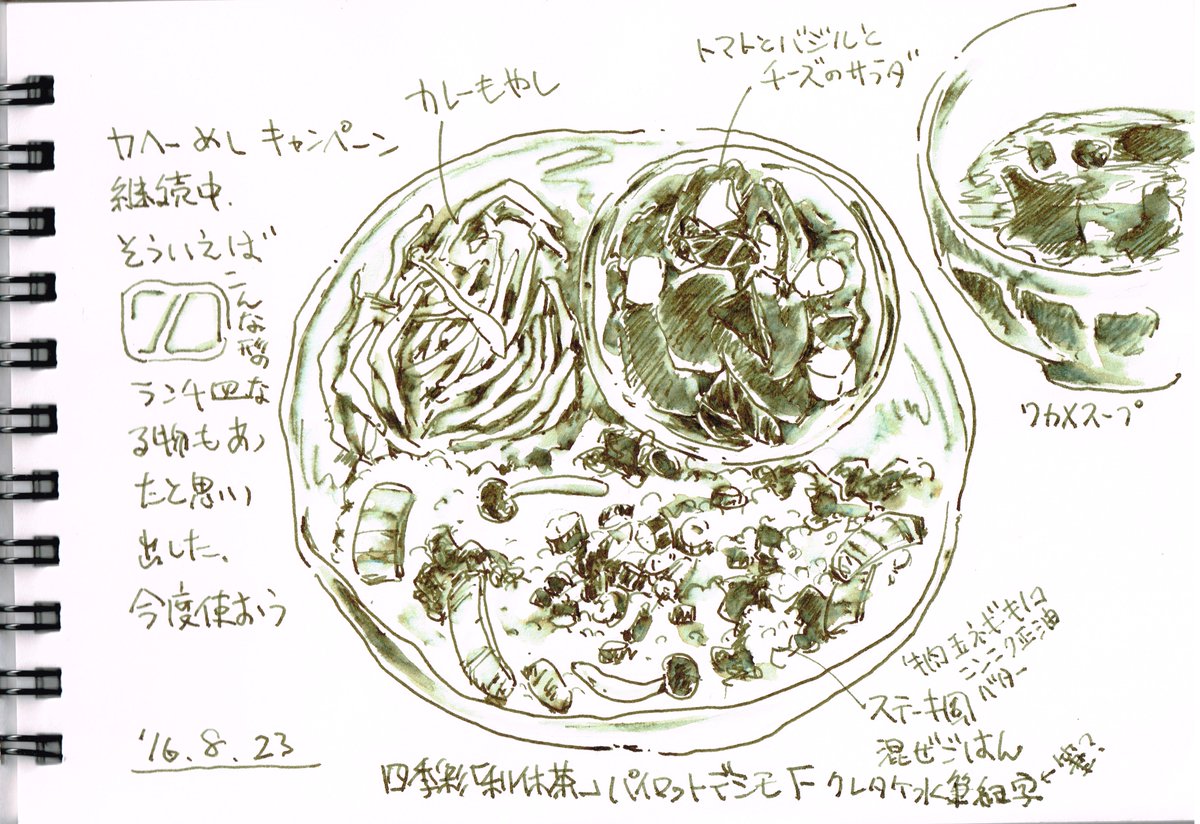 カレーもやし
トマトとバジルと
チーズのサラダ
カヘーめしキャンペーン
継続中.
そういえば
こんな形の
ランチ皿な
る物もあっ
たと思い
出した、
今度使おう
ワカメスープ
牛肉玉ネギキノコ
ニンニク正油
バター
ステーキ風
混ぜごはん
'16.8.23
四季彩「利休茶」パイロットデシモF クレタケ水筆細字